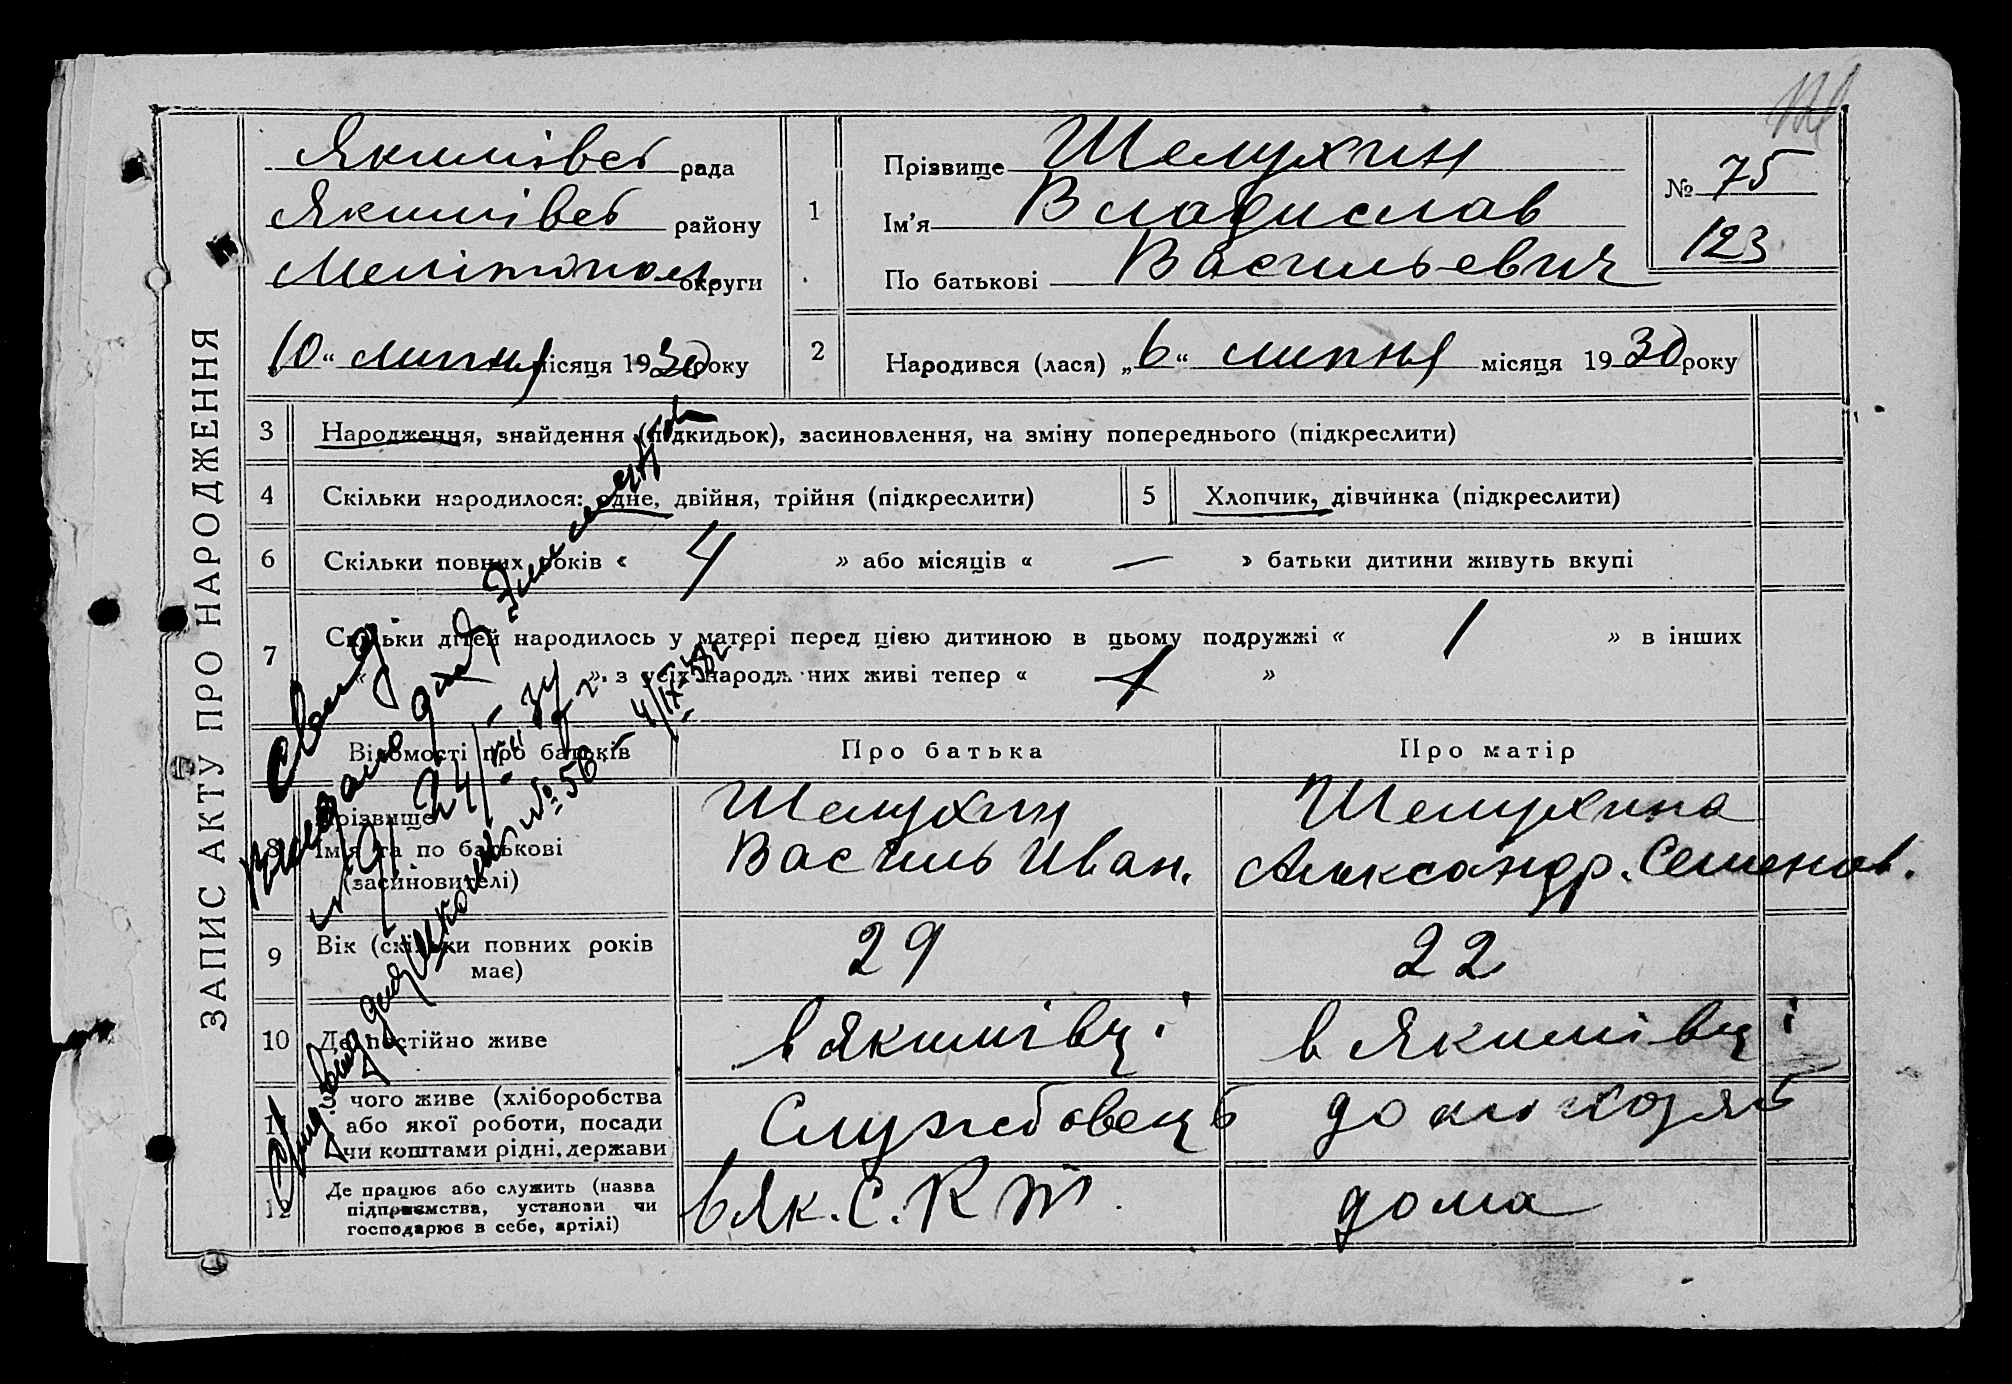 ЗАПИС АКТУ ПРО НАРОДЖЕННЯ
Якимівсь рада
Якимівсь району
Мелітополь округи
„10“ липня місяця 1930 року
1
Прізвище Шелухин
Ім’я Владислав
По батькові Васильевич
№ 75
123
2
Народився (лася) „6“ липня місяця 1930 року
3 Народження, знайдення (підкидьок), засиновлення, на зміну попереднього (підкреслити)
4 Скільки народилося: одне, двійня, трійня (підкреслити)
5 Хлопчик, дівчинка (підкреслити)
6 Скільки повних років « 4 » або місяців « — » батьки дитини живуть вкупі
7 Скільки дітей народилось у матері перед цією дитиною в цьому подружжі « 1 » в інших
« » з усіх народжених живі тепер « 1 »
Відомості про батьків Про батька Про матір
8 Прізвище
Ім’я та по батькові
(засиновителі)
Шелухин
Василь Иван.
Шелухина
Александр. Семенов.
9 Вік (скільки повних років
має)
29
22
10 Де постійно живе
в Якимівці
в Якимівці
11 чого живе (хліборобства
або якої роботи, посади
чи коштами рідні, держави
Службовець
домохозяй
12 Де працює або служить (назва
підприємства, установи чи
господарює в себе, артілі)
в Як. С. К Т.
дома